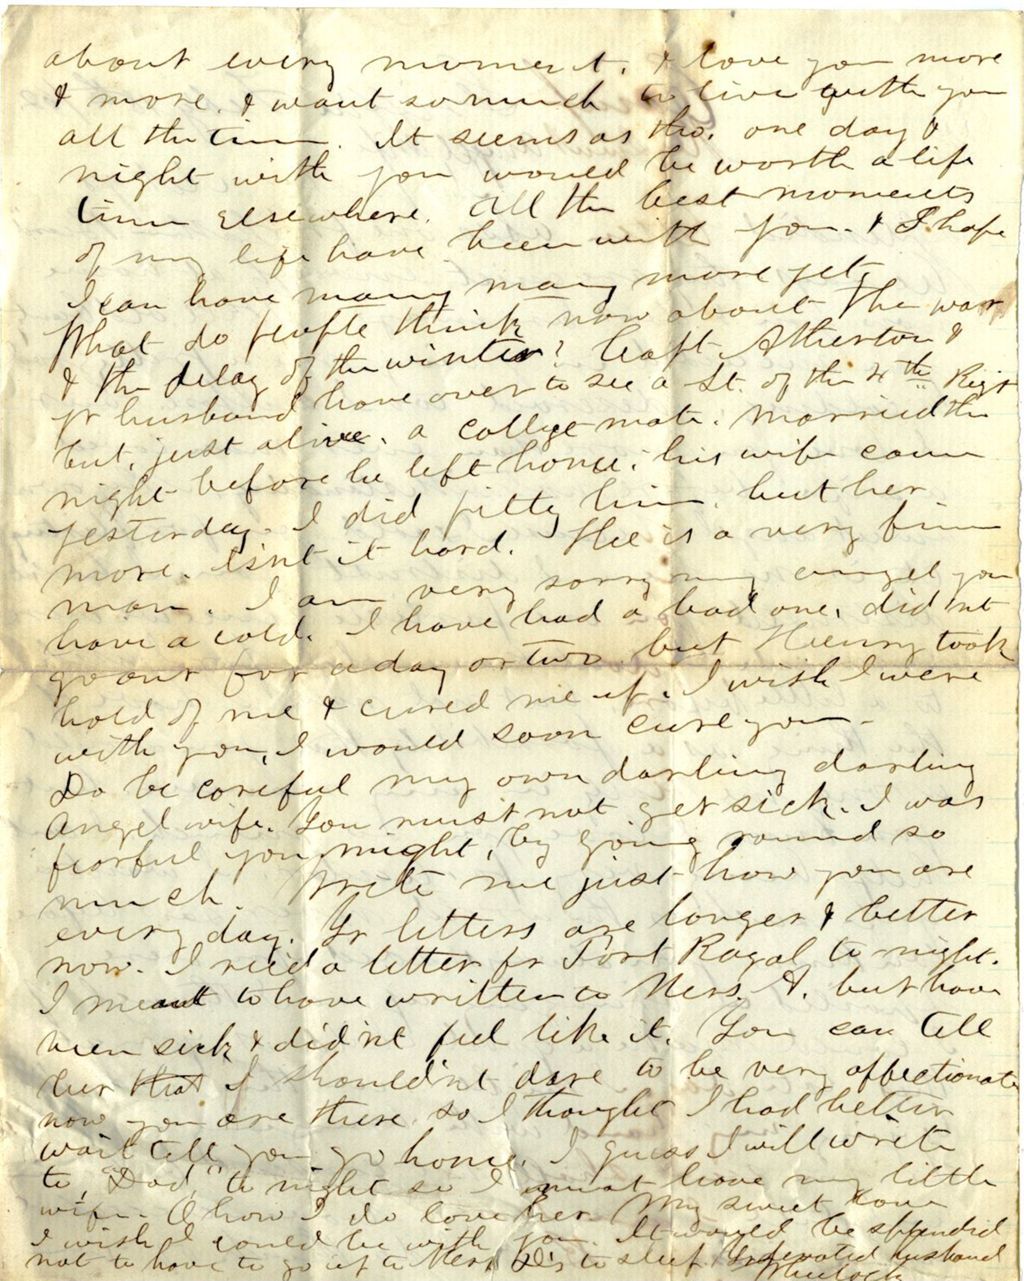 about every moment. I love you more
& more. I want so much to live with you
all the time. It seems as tho. one day &
night with you would be worth a life
time elsewhere. All the best moments
of my life have been with you. & I hope
I can have many many more yet.
What do people think now about the war
& the delay of the winter? Capt. Atherton &
yr husband have over to see a Lt. of the 4th Regt
but, just alive. a college mate. Married the
night before he left home. his wife came
yesterday. I did pitty him but her
more. Isnt it hard. He is a very fine
man. I am very sorry my angel you
have a cold. I have had a bad one, did nt
go out for a day or two but Henry took
hold of me & cured me up. I wish I were
with you, I would soon cure you -
Do be careful my own darling darling
Angel wife. You must not get sick. I was
fearful you might, by going round so
much. Write me just how you are
every day. Yr letters are longer & better
now. I recd a letter fr Port Royal to night.
I meant to have written to Mrs. A. but have
been sick & didnt feel like it. You can tell
her that I shouldnt dare to be very affectionate
now you are there so I thought I had better
wait till you go home. I guess I will write
to "Dad" to night so I must leave my little
wife. O how I do love her. My sweet love
I wish I could be with you. It would be splendid
not to have to go up to Mrs. to sleep. Yr devoted husband